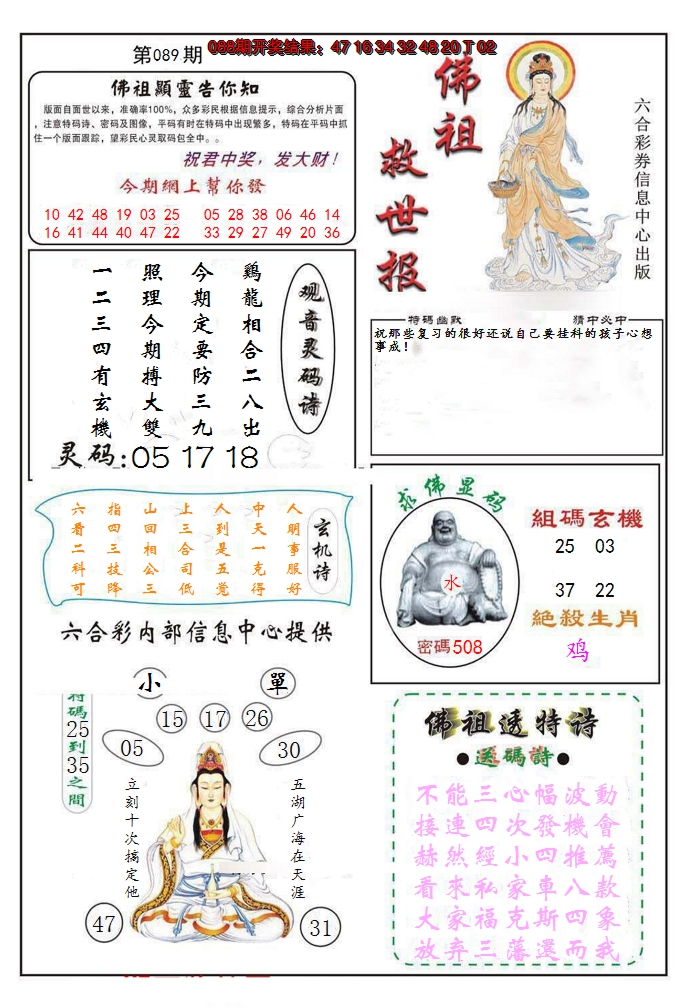 第089期
088期开奖结果：47 16 34 32 48 20 T 02
佛祖顯靈告你知
版面自面世以来，准确率100%，众多彩民根据信息提示，综合分析片面
，注意特码诗、密码及图像，平码有时在特码中出现繁多，特码在平码中抓
住一个版面跟踪，望彩民心灵取码包全中。。
祝君中奖，发大财！
今期網上幫你發
10 42 48 19 03 25 05 28 38 06 46 14
16 41 44 40 47 22 33 29 27 49 20 36
佛祖
救世报
六合彩券信息中心出版
观音灵码诗
鷄龍相合二八出
今期定要防三九
照理今期搏大雙
一二三四有玄機
灵码:05 17 18
特碼幽默
猜中必中
祝那些复习的很好还说自己要挂科的孩子心想
事成!
玄机诗
人明事服好
中天一克得
人到是五觉
上三合司低
山回相公三
指四三技降
六看二科可
六合彩内部信息中心提供
求佛显码
水
密碼508
組碼玄機
25 03
37 22
絶殺生肖
鸡
小
單
特碼25到35之間
15 17 26
05
30
立刻十次搞定他
五湖广海在天涯
47
31
佛祖透特诗
●送碼詩●
不能三心幅波動
接連四次發機會
赫然經小四推薦
看來私家車八款
大家福克斯四象
放弃三藩還而我